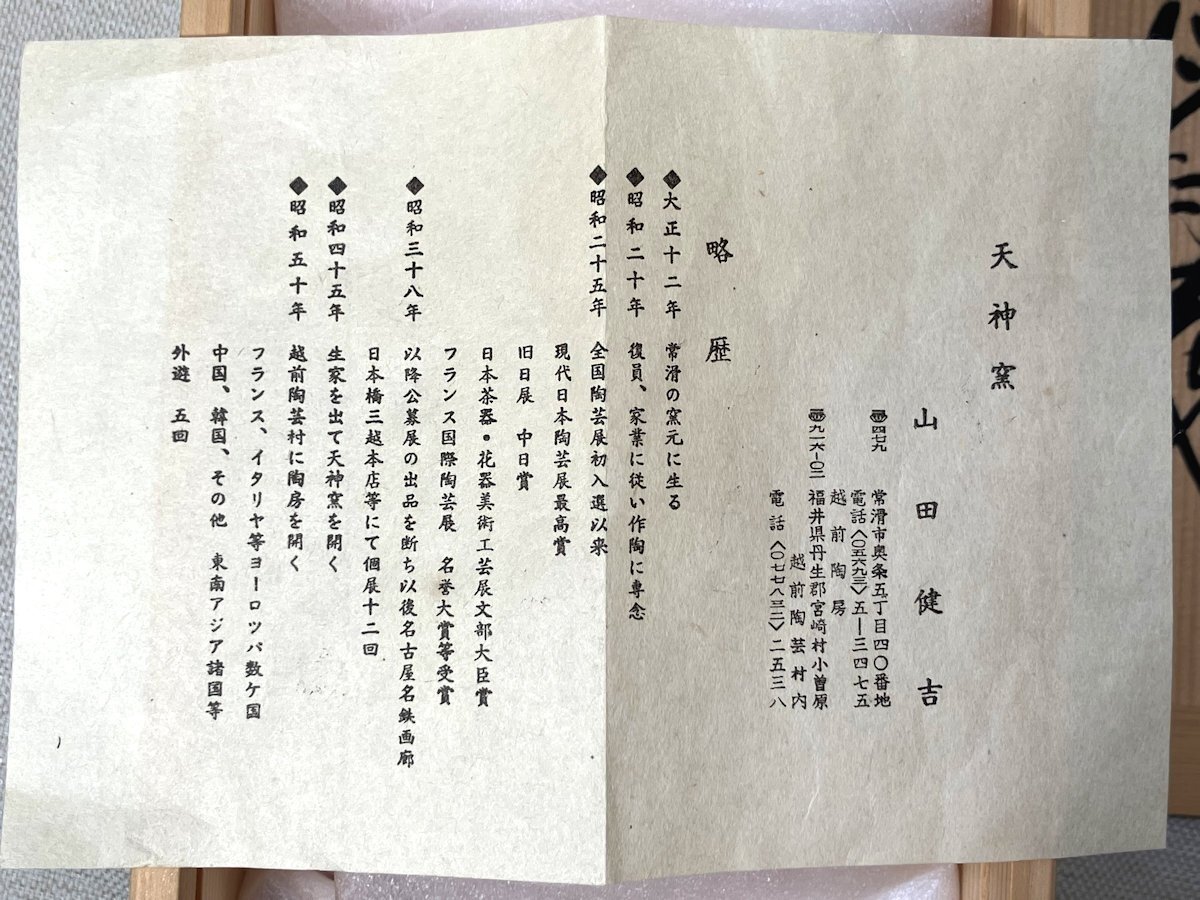 天神窯
山田健吉
〒四七九 常滑市奥条五丁目四〇番地
電話〈〇五六九三〉五ー三四七五
越前陶房
〒九一六-〇二 福井県丹生郡宮崎村小曽原
越前陶芸村内
電話〈〇七七八三二〉二五三八
略歴
◆大正十二年 常滑の窯元に生る
◆昭和二十年 復員、家業に従い作陶に専念
◆昭和二十五年 全国陶芸展初入選以来
現代日本陶芸展最高賞
旧日展 中日賞
日本茶器・花器美術工芸展文部大臣賞
フランス国際陶芸展 名誉大賞等受賞
◆昭和三十八年 以降公募展の出品を断ち以後名古屋名鉄画廊
日本橋三越本店等にて個展十二回
◆昭和四十五年 生家を出て天神窯を開く
◆昭和五十年 越前陶芸村に陶房を開く
フランス、イタリヤ等ヨーロツパ数ケ国
中国、韓国、その他 東南アジア諸国等
外遊 五回